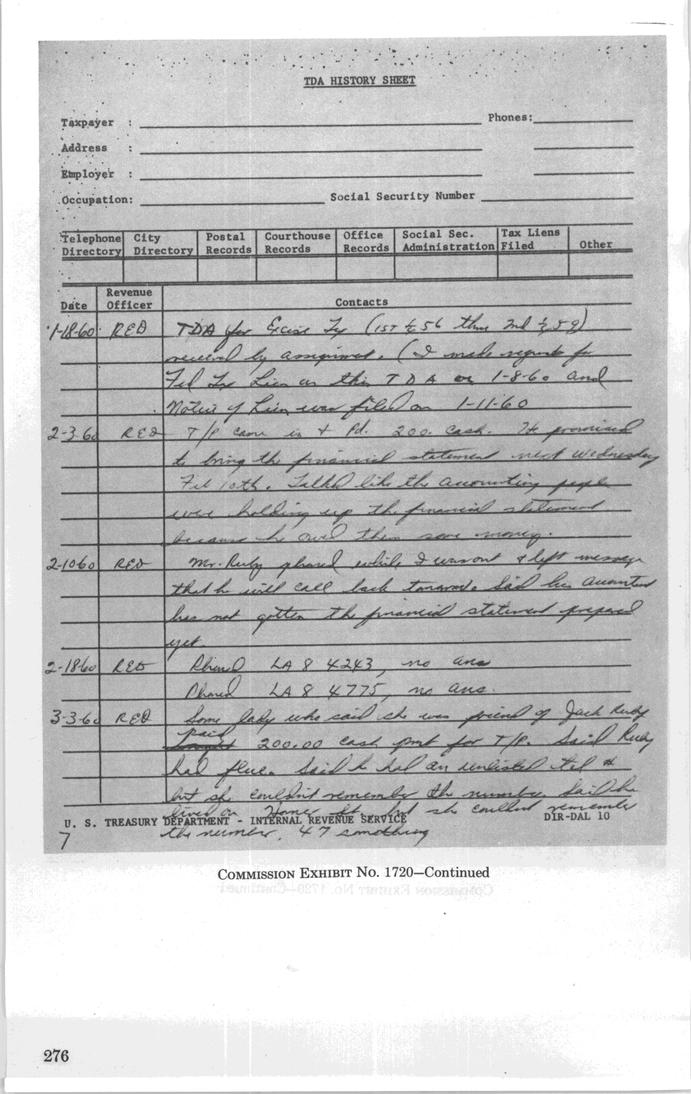 TDA HISTORY SHEET
Taxpayer : Phones:
Address :
Employer :
Occupation: Social Security Number
Telephone Directory City Directory Postal Records Courthouse Records Office Records Social Sec. Administration Tax Liens Filed Other
Date Revenue Officer Contacts
1-18-60 RED TDA for Excise Tx (1st ½ 56 thru 2nd ½ 59)
received by assignment. (I made request for
Fed Tx Lien on this TDA on 1-8-60 and
Notice of Lien was filed on 1-11-60
2-3-60 RED T/P came in & Pd. 200. cash. He promised
to bring the financial statement next Wednesday
Feb 10th. Talked like the accounting people
were holding up the financial statement
because he owed them some money.
2-10-60 RED Mr. Ruby phoned while I was out & left message
that he will call back. Said his accountant
has not gotten the financial statement prepared
yet.
2-18-60 RED Phoned LA 8 4243, no ans
Phoned LA 8 4775, no ans.
3-3-60 RED Some lady who said she was friend of Jack Ruby
paid 200.00 cash pmt for T/P. Said Ruby
had flue. Said he had an unlisted tel #
but she couldn't remember the number. Said he
lived on Homer St. but she couldn't remember
the number, 47 something
U. S. TREASURY DEPARTMENT - INTERNAL REVENUE SERVICE DIR-DAL 10
7
COMMISSION EXHIBIT No. 1720—Continued
276